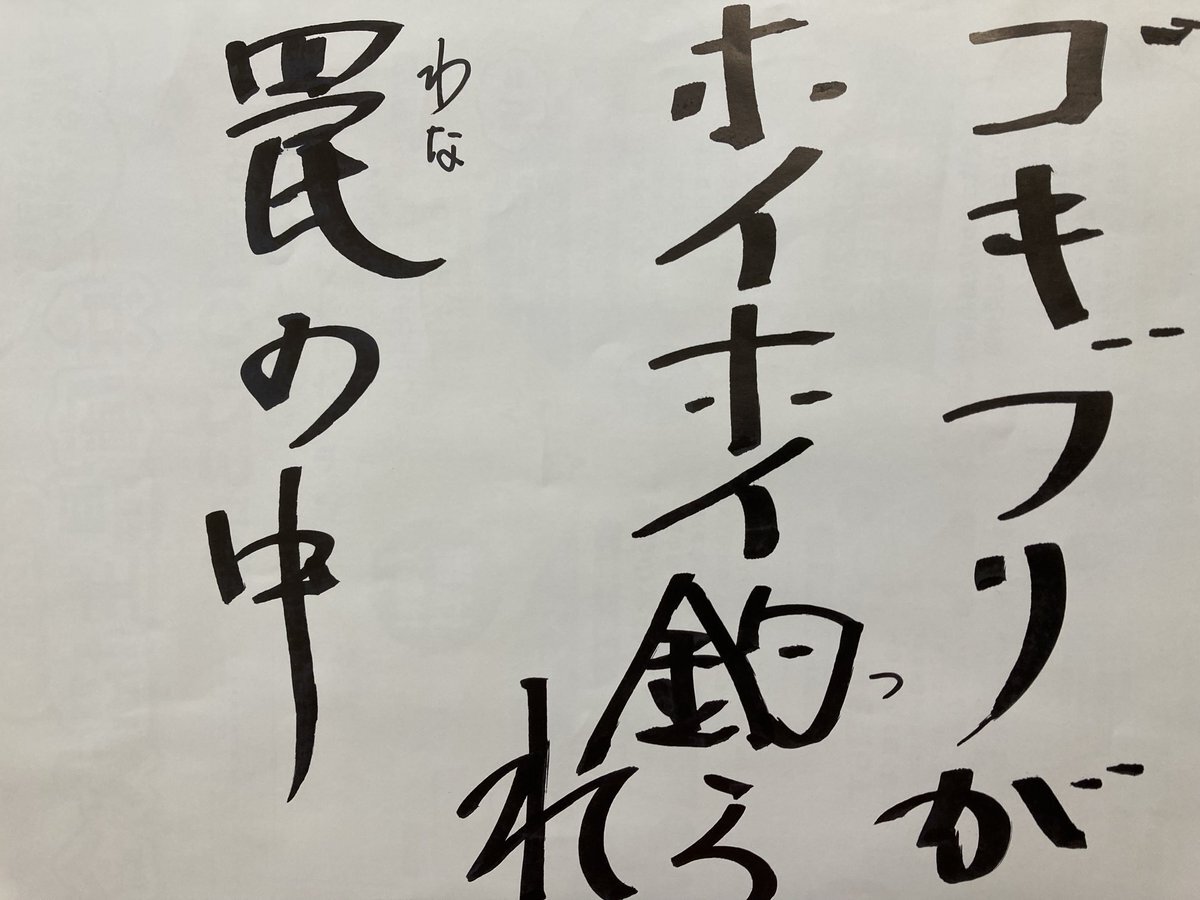 ゴギブリが
ホイホイ釣られ
罠の中
わな
つ